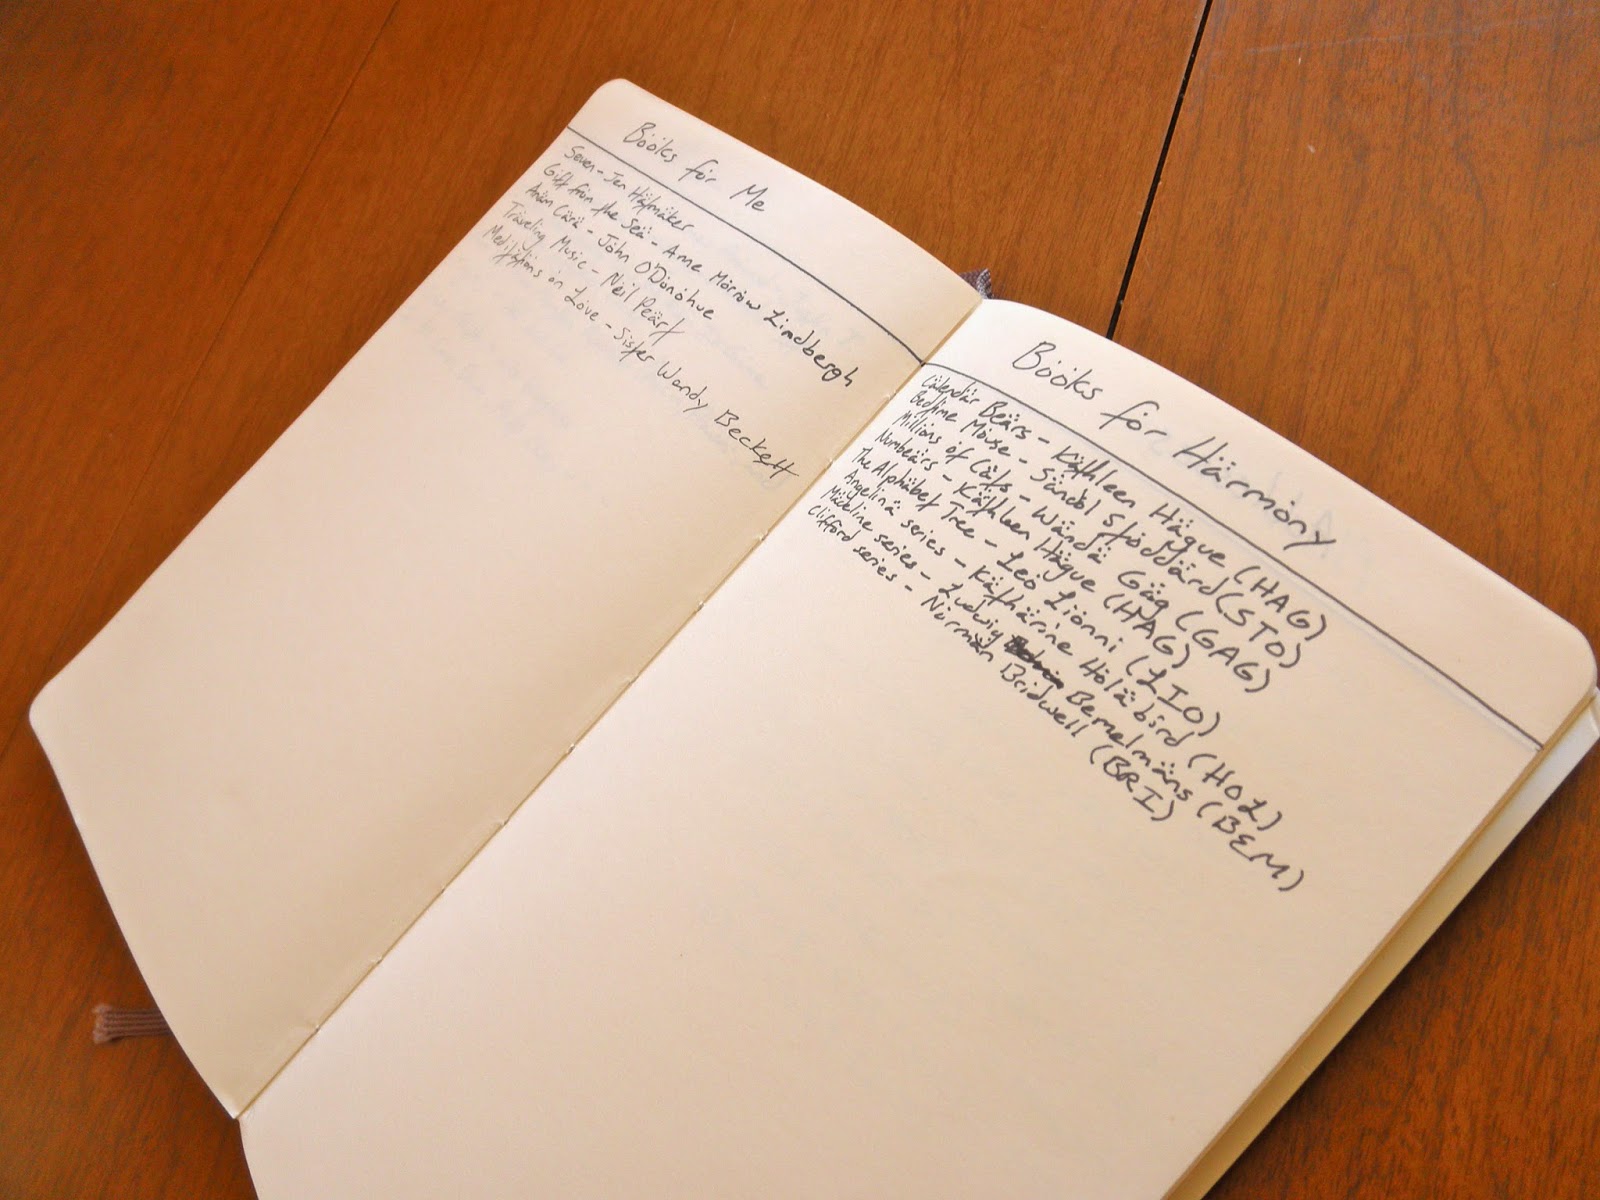 Bööks för Me
Seven - Jen Hätmäker
Gift fröm the Seä - Anne Mörröw Lindbergh
Anäm Cärä - Jöhn O'Dönöhue
Träveling Music - Neil Peärt
Meditätiöns ön Löve - Sister Wendy Beckett
Bööks för Härmöny
Cälendär Beärs - Käthleen Hägue (HAG)
Bedtime Möuse - Sändöl Stöddärd (STO)
Milliöns öf Cäts - Wändä Gäg (GAG)
Numbeärs - Käthleen Hägue (HAG)
The Alphäbet Tree - Leö Liönni (LIO)
Angelinä series - Käthärine Höläbird (HOL)
Mädeline series - Ludwig Bemelmäns (BEM)
Clifförd series - Nörmän Bridwell (BRI)